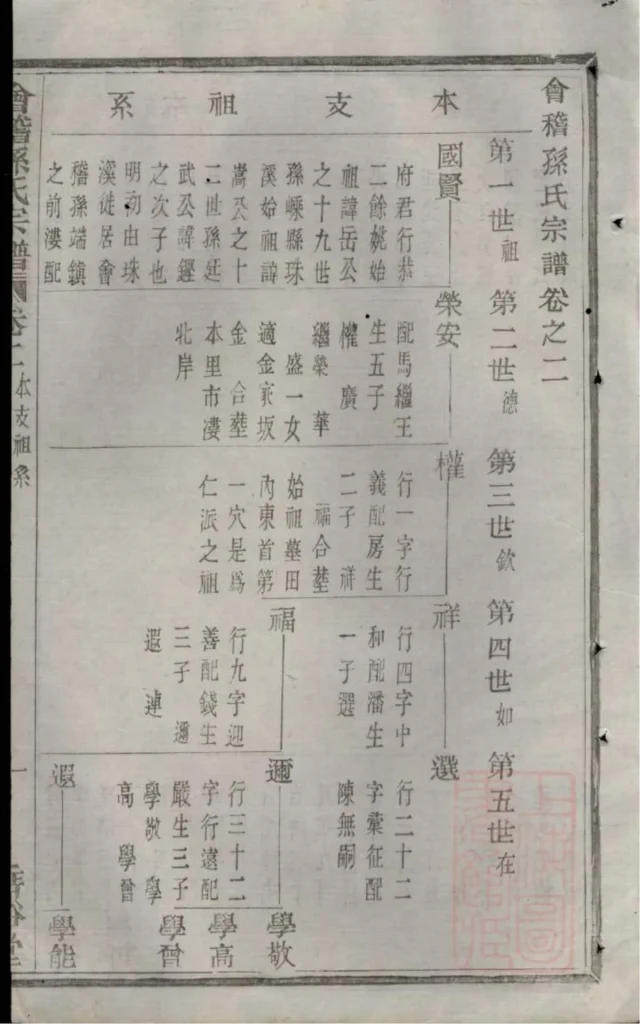 會稽孫氏宗譜卷之二
本支祖系
第一世祖
第二世德
第三世欽
第四世如
第五世在
國賢
府君行恭
二餘姚始
祖諱岳公
之十九世
孫嵊縣珠
溪始祖諱
嵩公之十
二世孫廷
武公諱鏗
之次子也
明初由珠
溪徙居會
稽孫端鎮
之前漊配
榮安
配馬繼王
生五子
權 廣
繼榮 華
盛一女
適金家坂
金 合塟
本里市漊
北岸
權
行一字行
義配房生
二子 祥
福合塟
始祖墓田
內東首第
一穴是爲
仁派之祖
祥
行四字中
和配潘生
一子選
福
行九字迎
善配錢生
三子 邇
遐 連
選
行二十二
字彙征配
陳無嗣
邇
行三十二
字行遠配
嚴生三子
學敬 學
高 學曾
遐
學敬
學高
學曾
學能
會稽孫氏宗譜
卷二 本支祖系
一